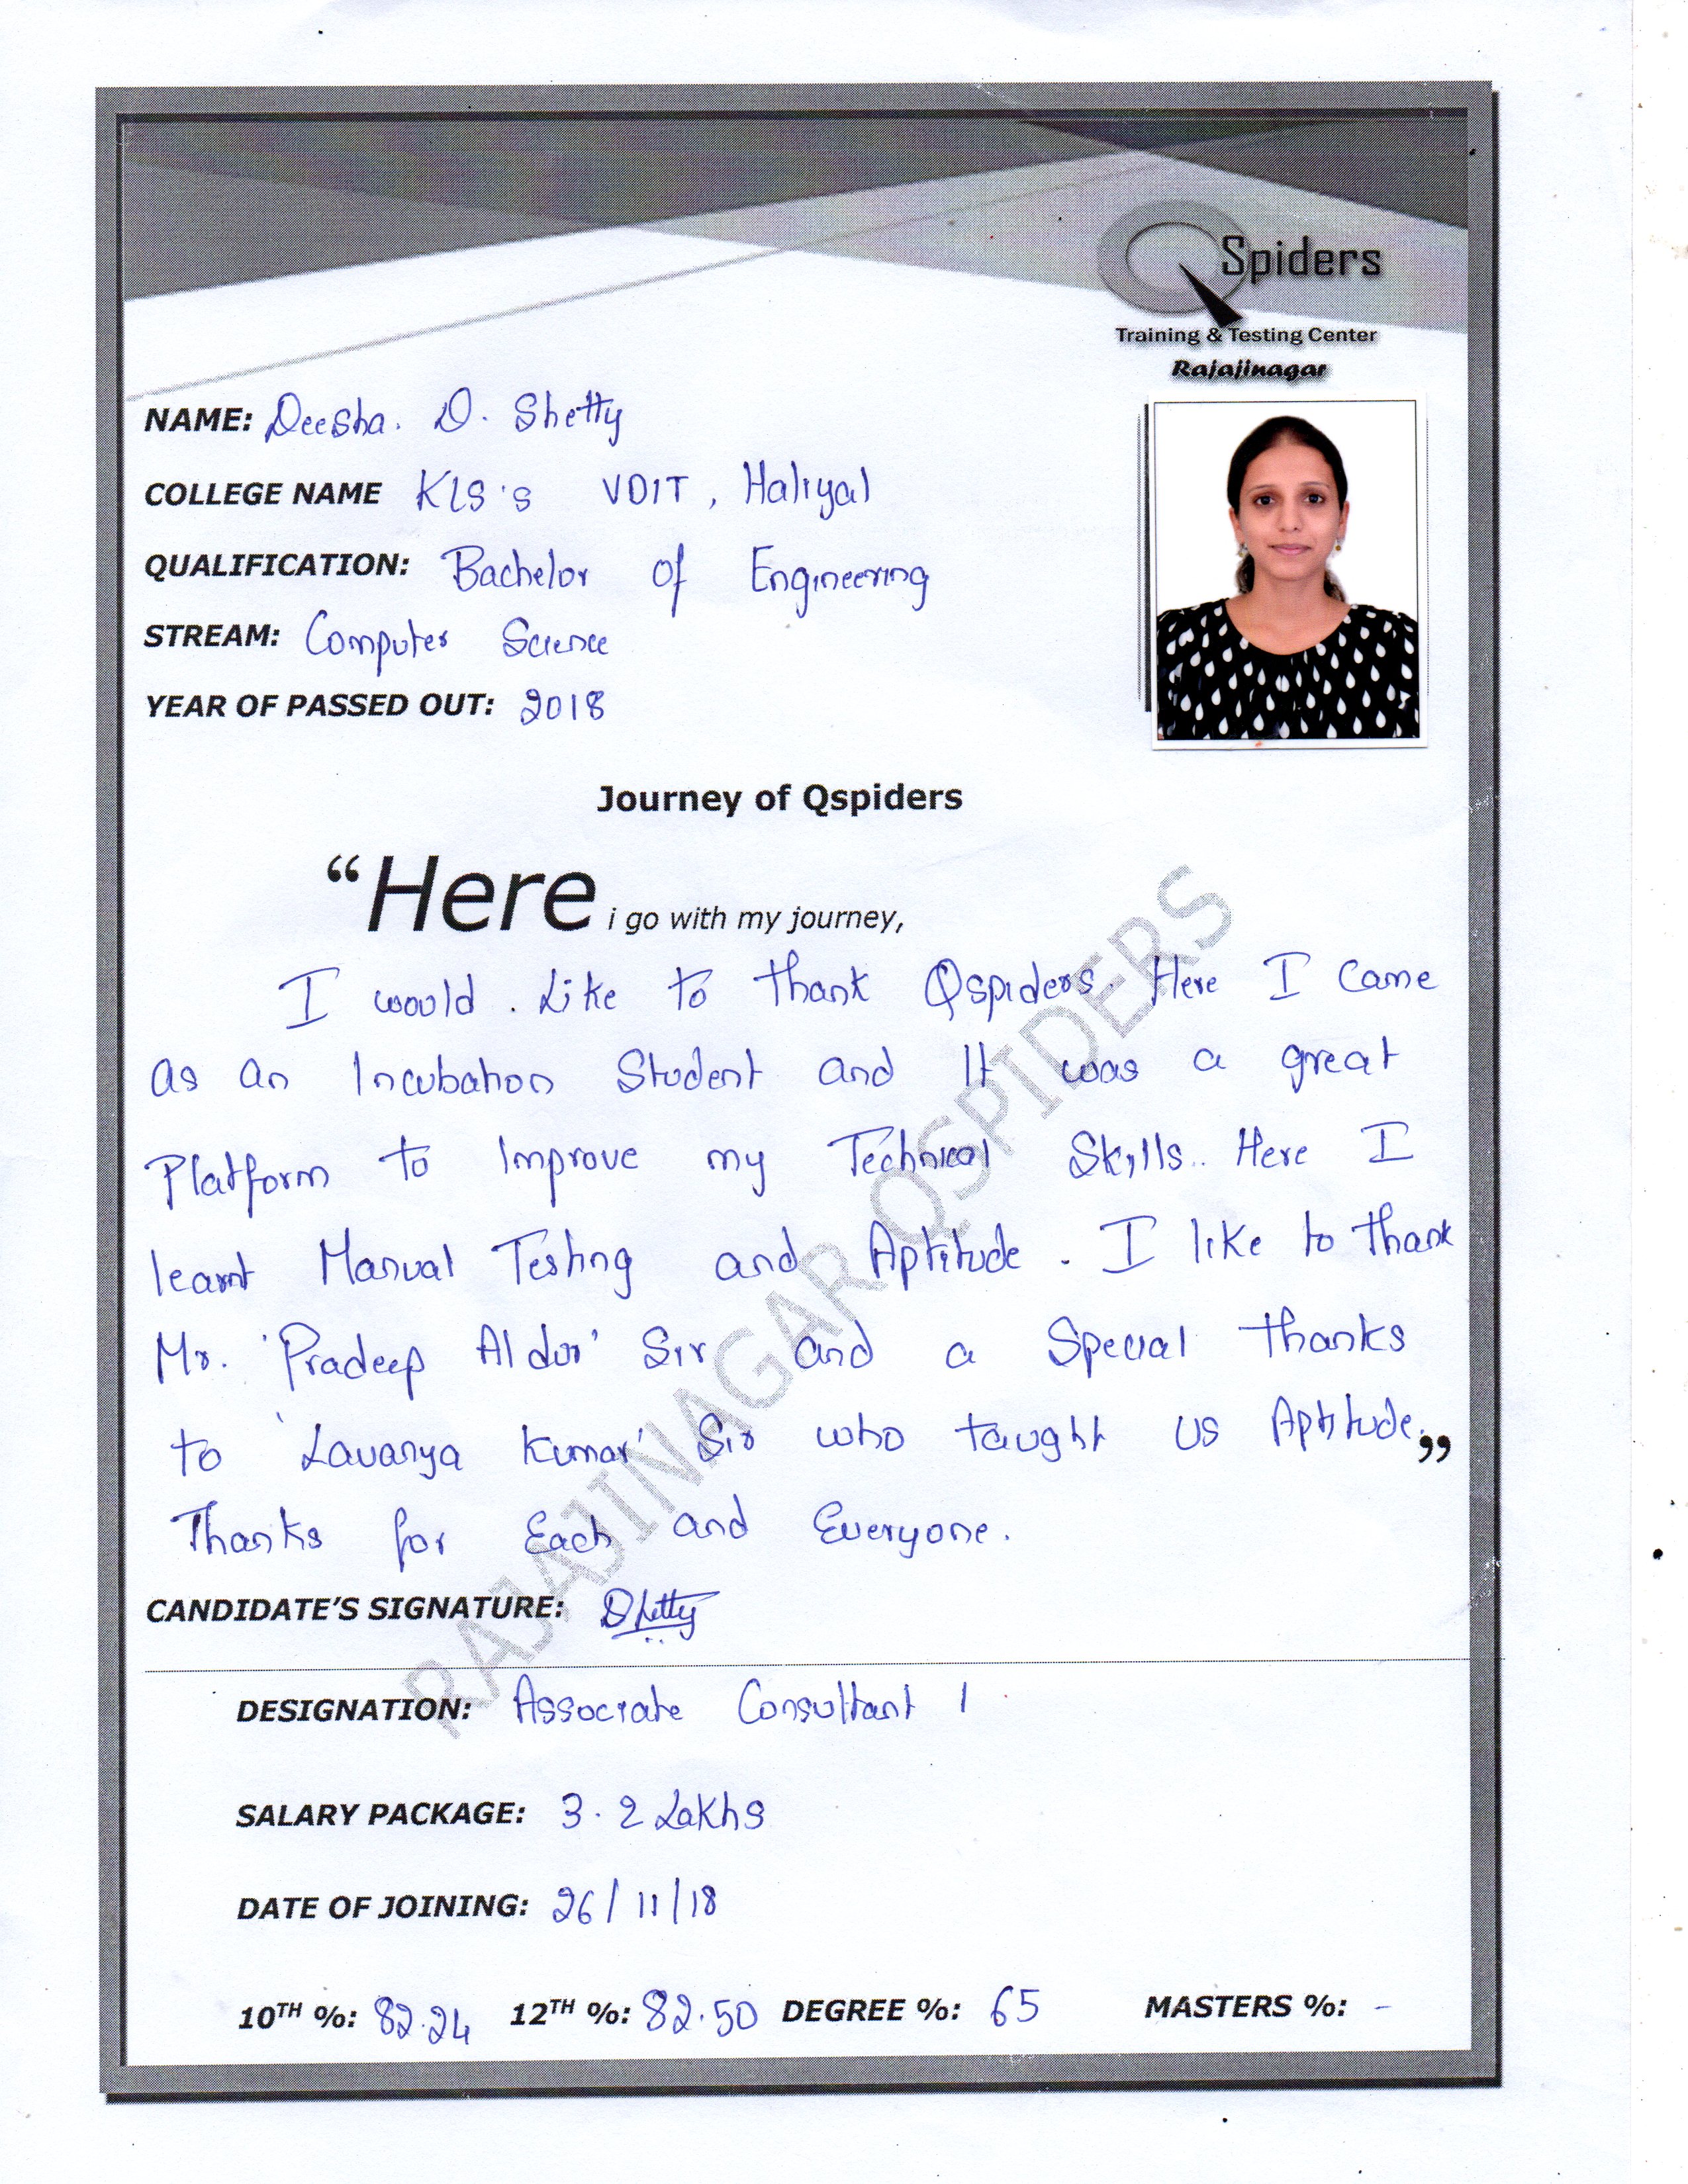 Spiders
Training & Testing Center
Rajajinagar
NAME: Deesha. D. Shetty
COLLEGE NAME KLS's VDIT, Haliyal
QUALIFICATION: Bachelor of Engineering
STREAM: Computer Science
YEAR OF PASSED OUT: 2018
Journey of Qspiders
“Here i go with my journey,
I would. Like to thank Qspiders. Here I Came
as an Incubation Student and It was a great
Platform to Improve my Technical Skills.. Here I
learnt Manual Testing and Aptitude. I like to thank
Mr. 'Pradeep Aldor' Sir and a Special thanks
to 'Lavanya Kumar' Sir who taught us Aptitude.”
Thanks for Each and Everyone.
CANDIDATE’S SIGNATURE: DShetty
RAJAJINAGAR QSPIDERS
DESIGNATION: Associate Consultant 1
SALARY PACKAGE: 3.2 Lakhs
DATE OF JOINING: 26/11/18
10TH %: 82.24 12TH %: 82.50 DEGREE %: 65 MASTERS %: -